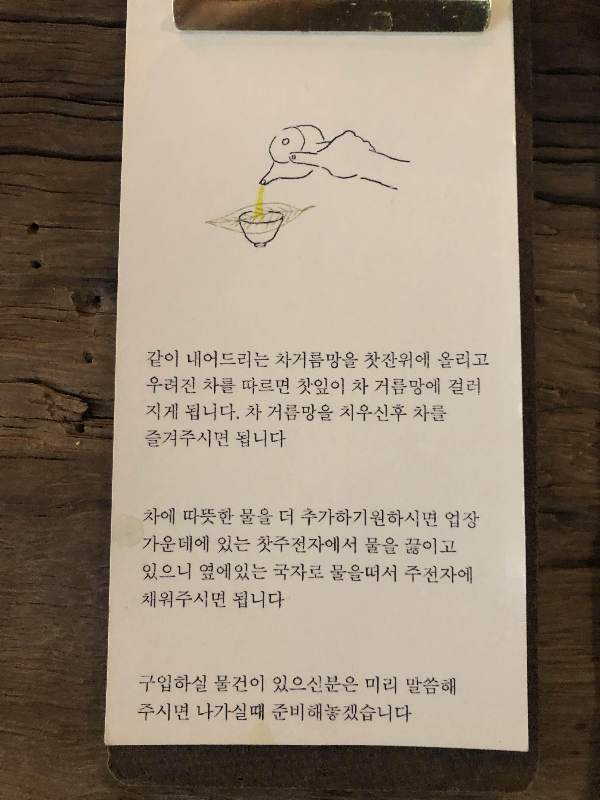 같이 내어드리는 차거름망을 찻잔위에 올리고
우려진 차를 따르면 찻잎이 차 거름망에 걸러
지게 됩니다. 차 거름망을 치우신후 차를
즐겨주시면 됩니다
차에 따뜻한 물을 더 추가하기원하시면 업장
가운데에 있는 찻주전자에서 물을 끓이고
있으니 옆에있는 국자로 물을떠서 주전자에
채워주시면 됩니다
구입하실 물건이 있으신분은 미리 말씀해
주시면 나가실때 준비해놓겠습니다